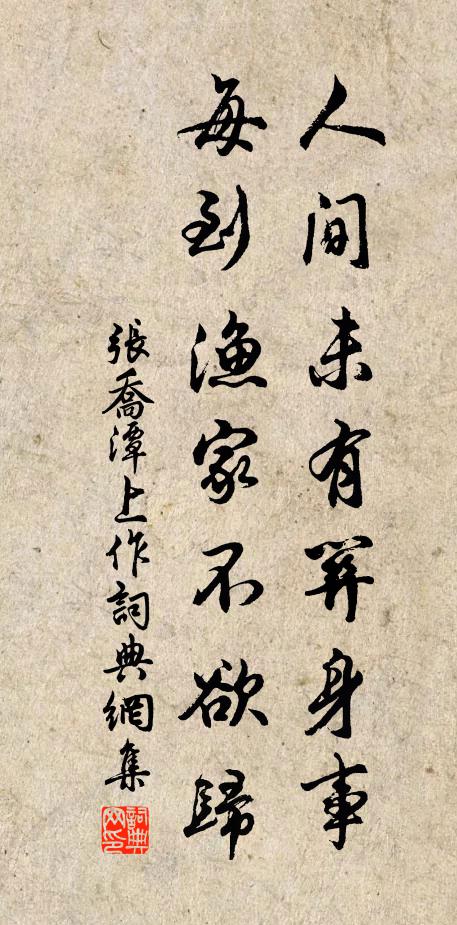 人間未有關身事
每到漁家不欲歸
張喬潭上作詞典網集
詞典网印